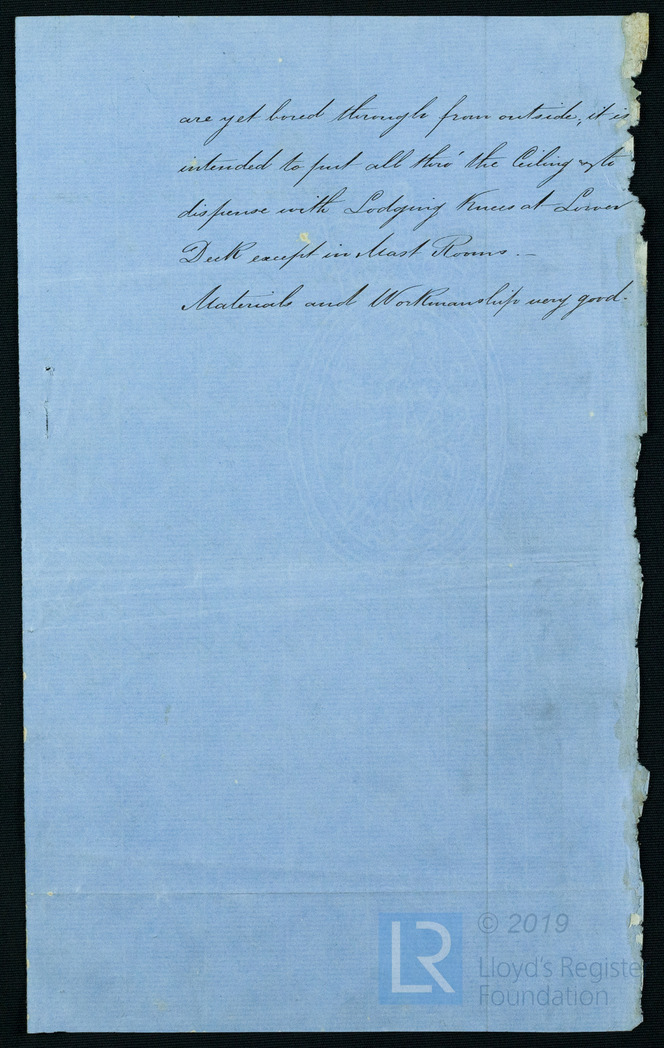 are yet bored through from outside, it is
intended to put all thro' the Ceiling & to
dispense with Lodging Knees at Lower
Deck except in Mast Rooms. —
Materials and Workmanship very good.
LR
© 2019
Lloyd's Register
Foundation